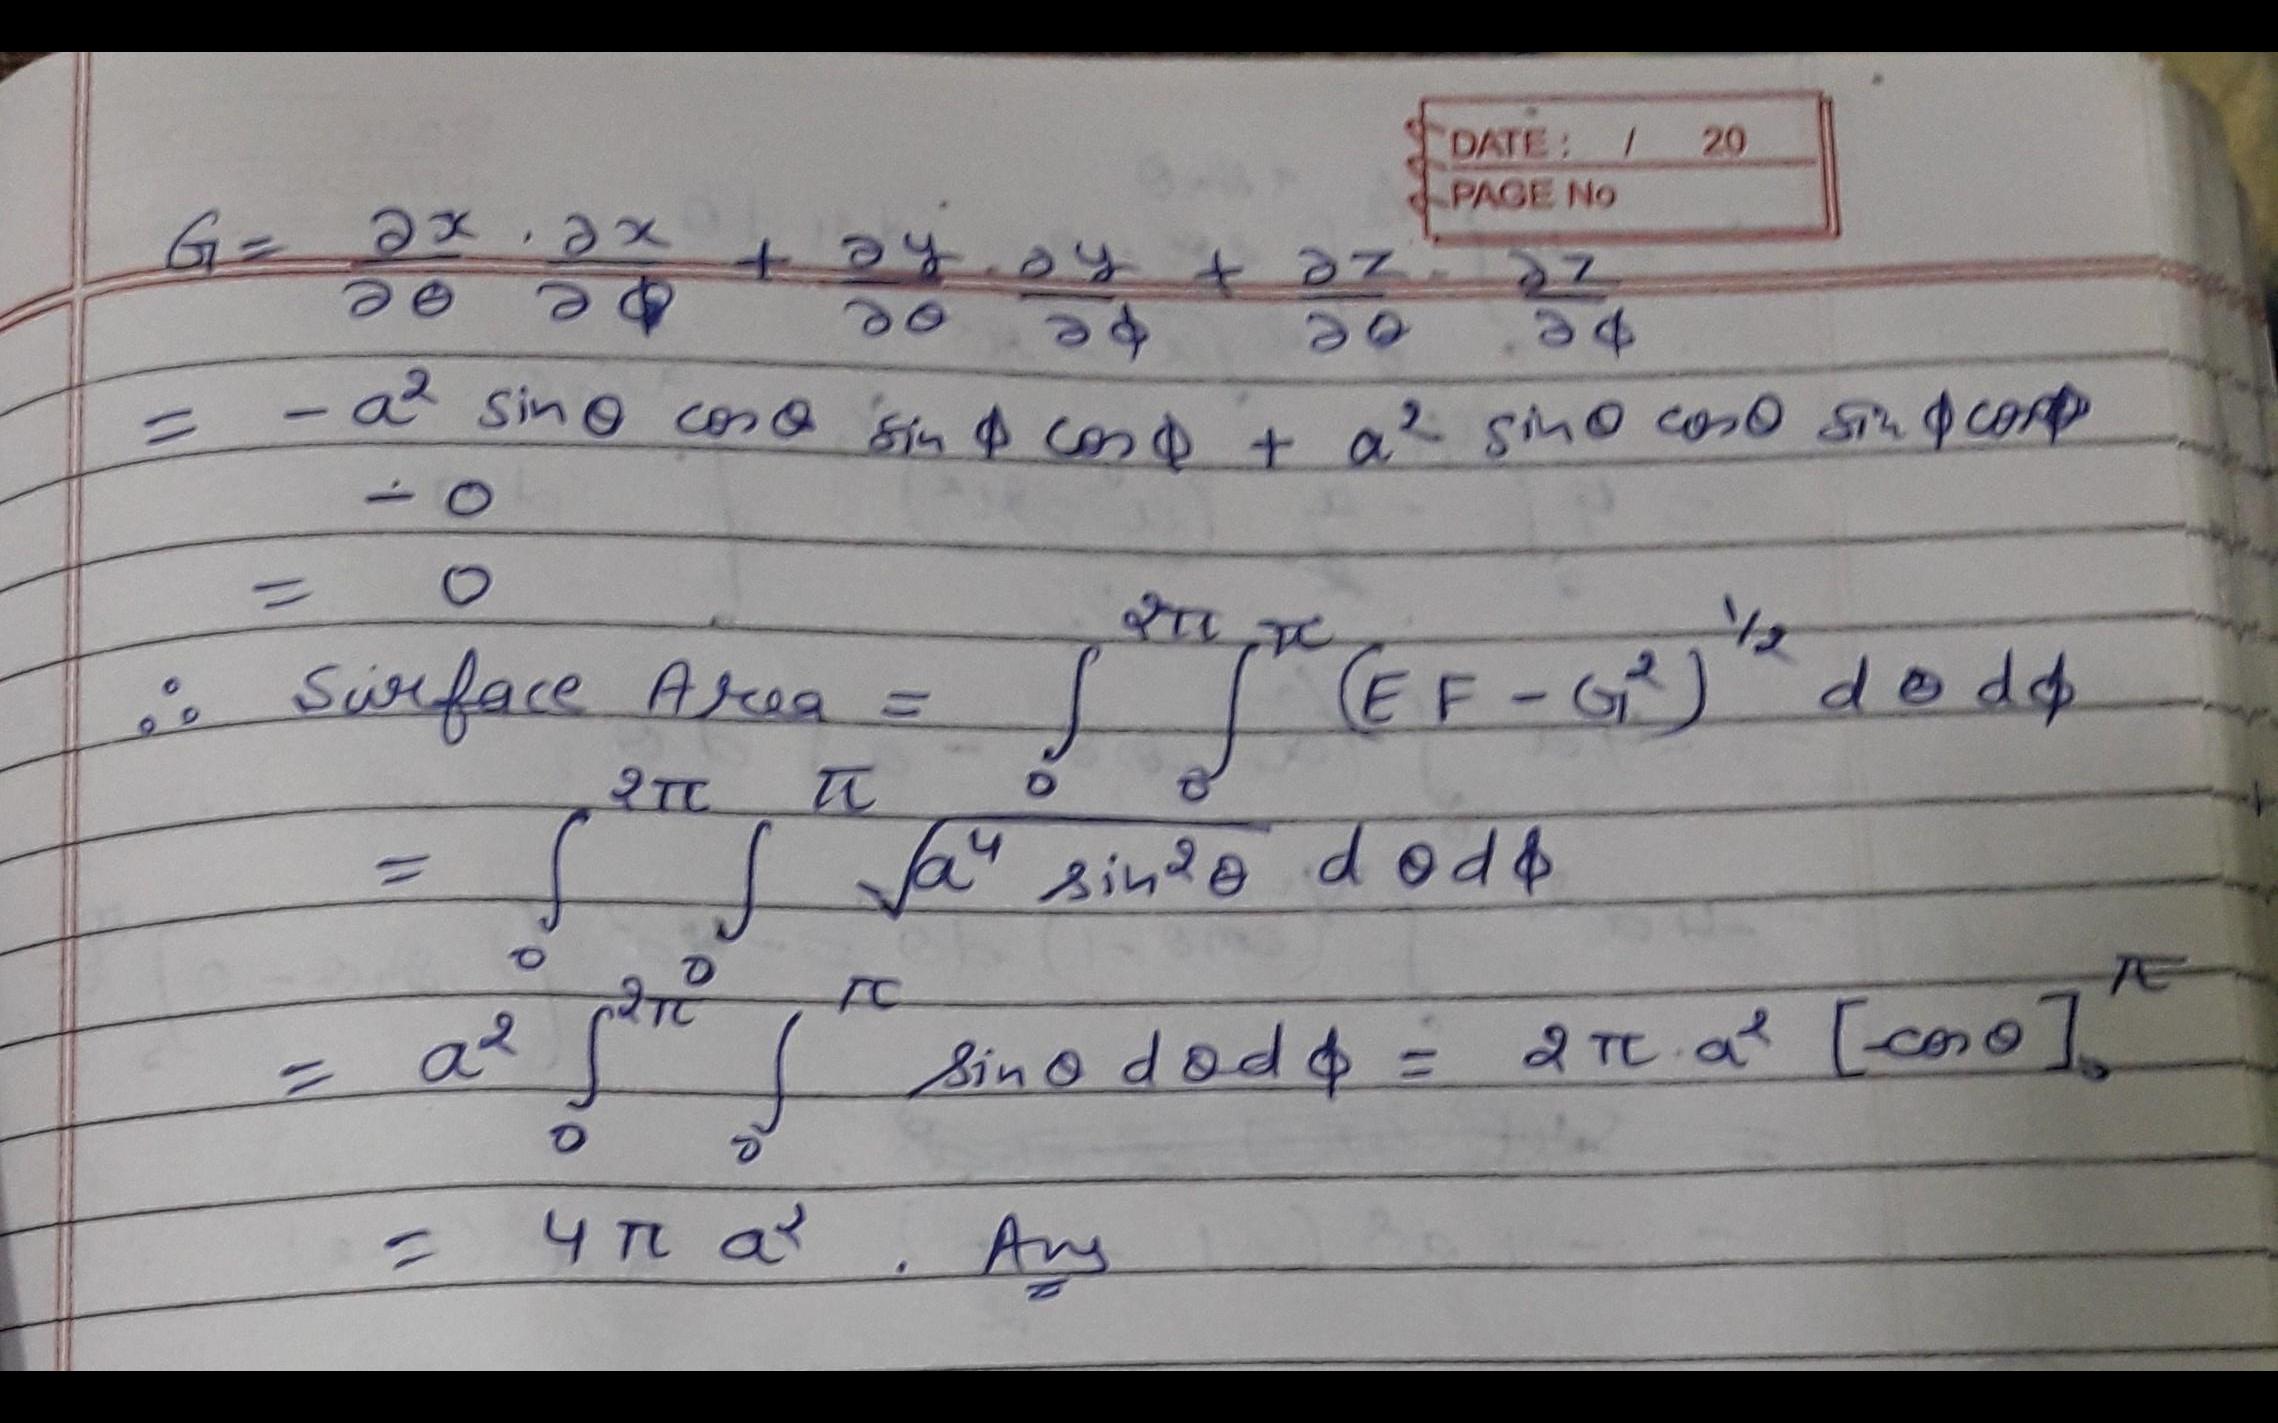 DATE: / 20
PAGE No
G = ∂x/∂θ · ∂x/∂ϕ + ∂y/∂θ · ∂y/∂ϕ + ∂z/∂θ · ∂z/∂ϕ
= - a² sinθ cosθ sinϕ cosϕ + a² sinθ cosθ sinϕ cosϕ
- 0
= 0
∴ Surface Area = ∫₀^2π ∫₀^π (EF - G²)^1/2 dθ dϕ
= ∫₀^2π ∫₀^π √(a⁴ sin²θ) dθ dϕ
= a² ∫₀^2π ∫₀^π sinθ dθ dϕ = 2π · a² [-cosθ]₀^π
= 4πa² . Ans